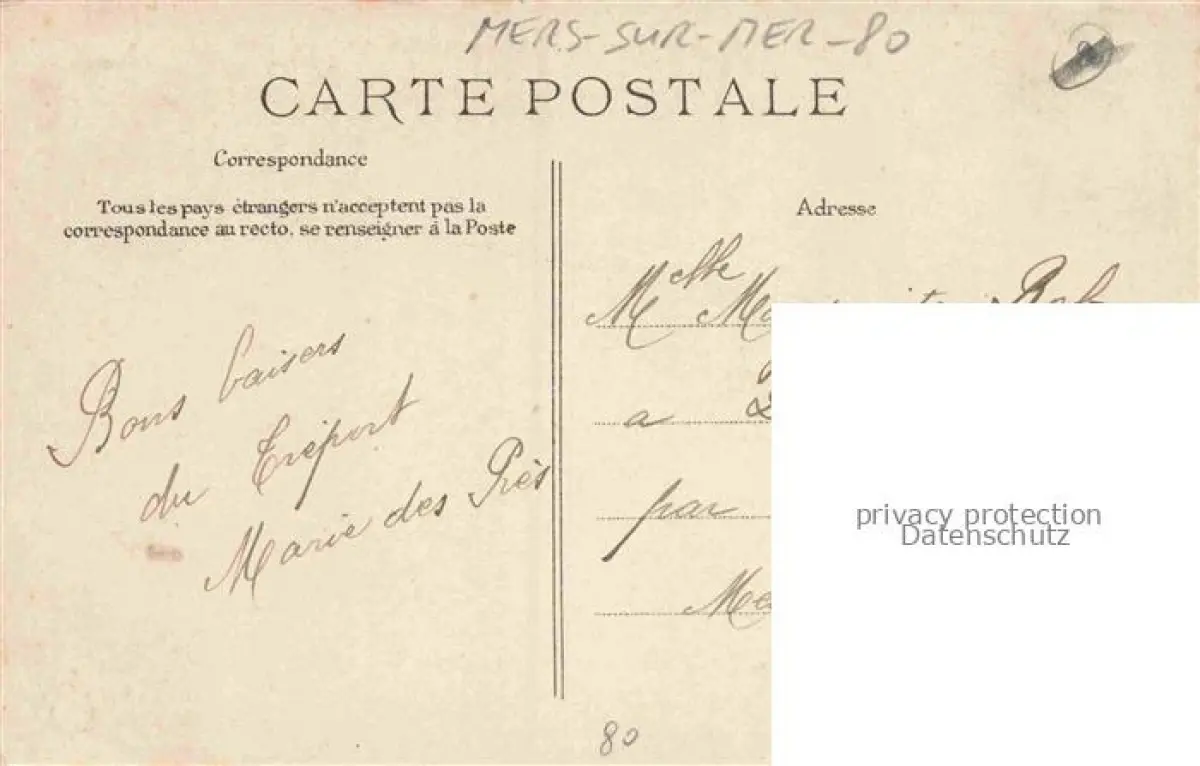 MERS-SUR-MER-80
CARTE POSTALE
Correspondance
Tous les pays étrangers n'acceptent pas la
correspondance au recto, se renseigner à la Poste
Adresse
Bons baisers
du Tréport
Marie des Près
Melle
a
par
80
privacy protection
Datenschutz